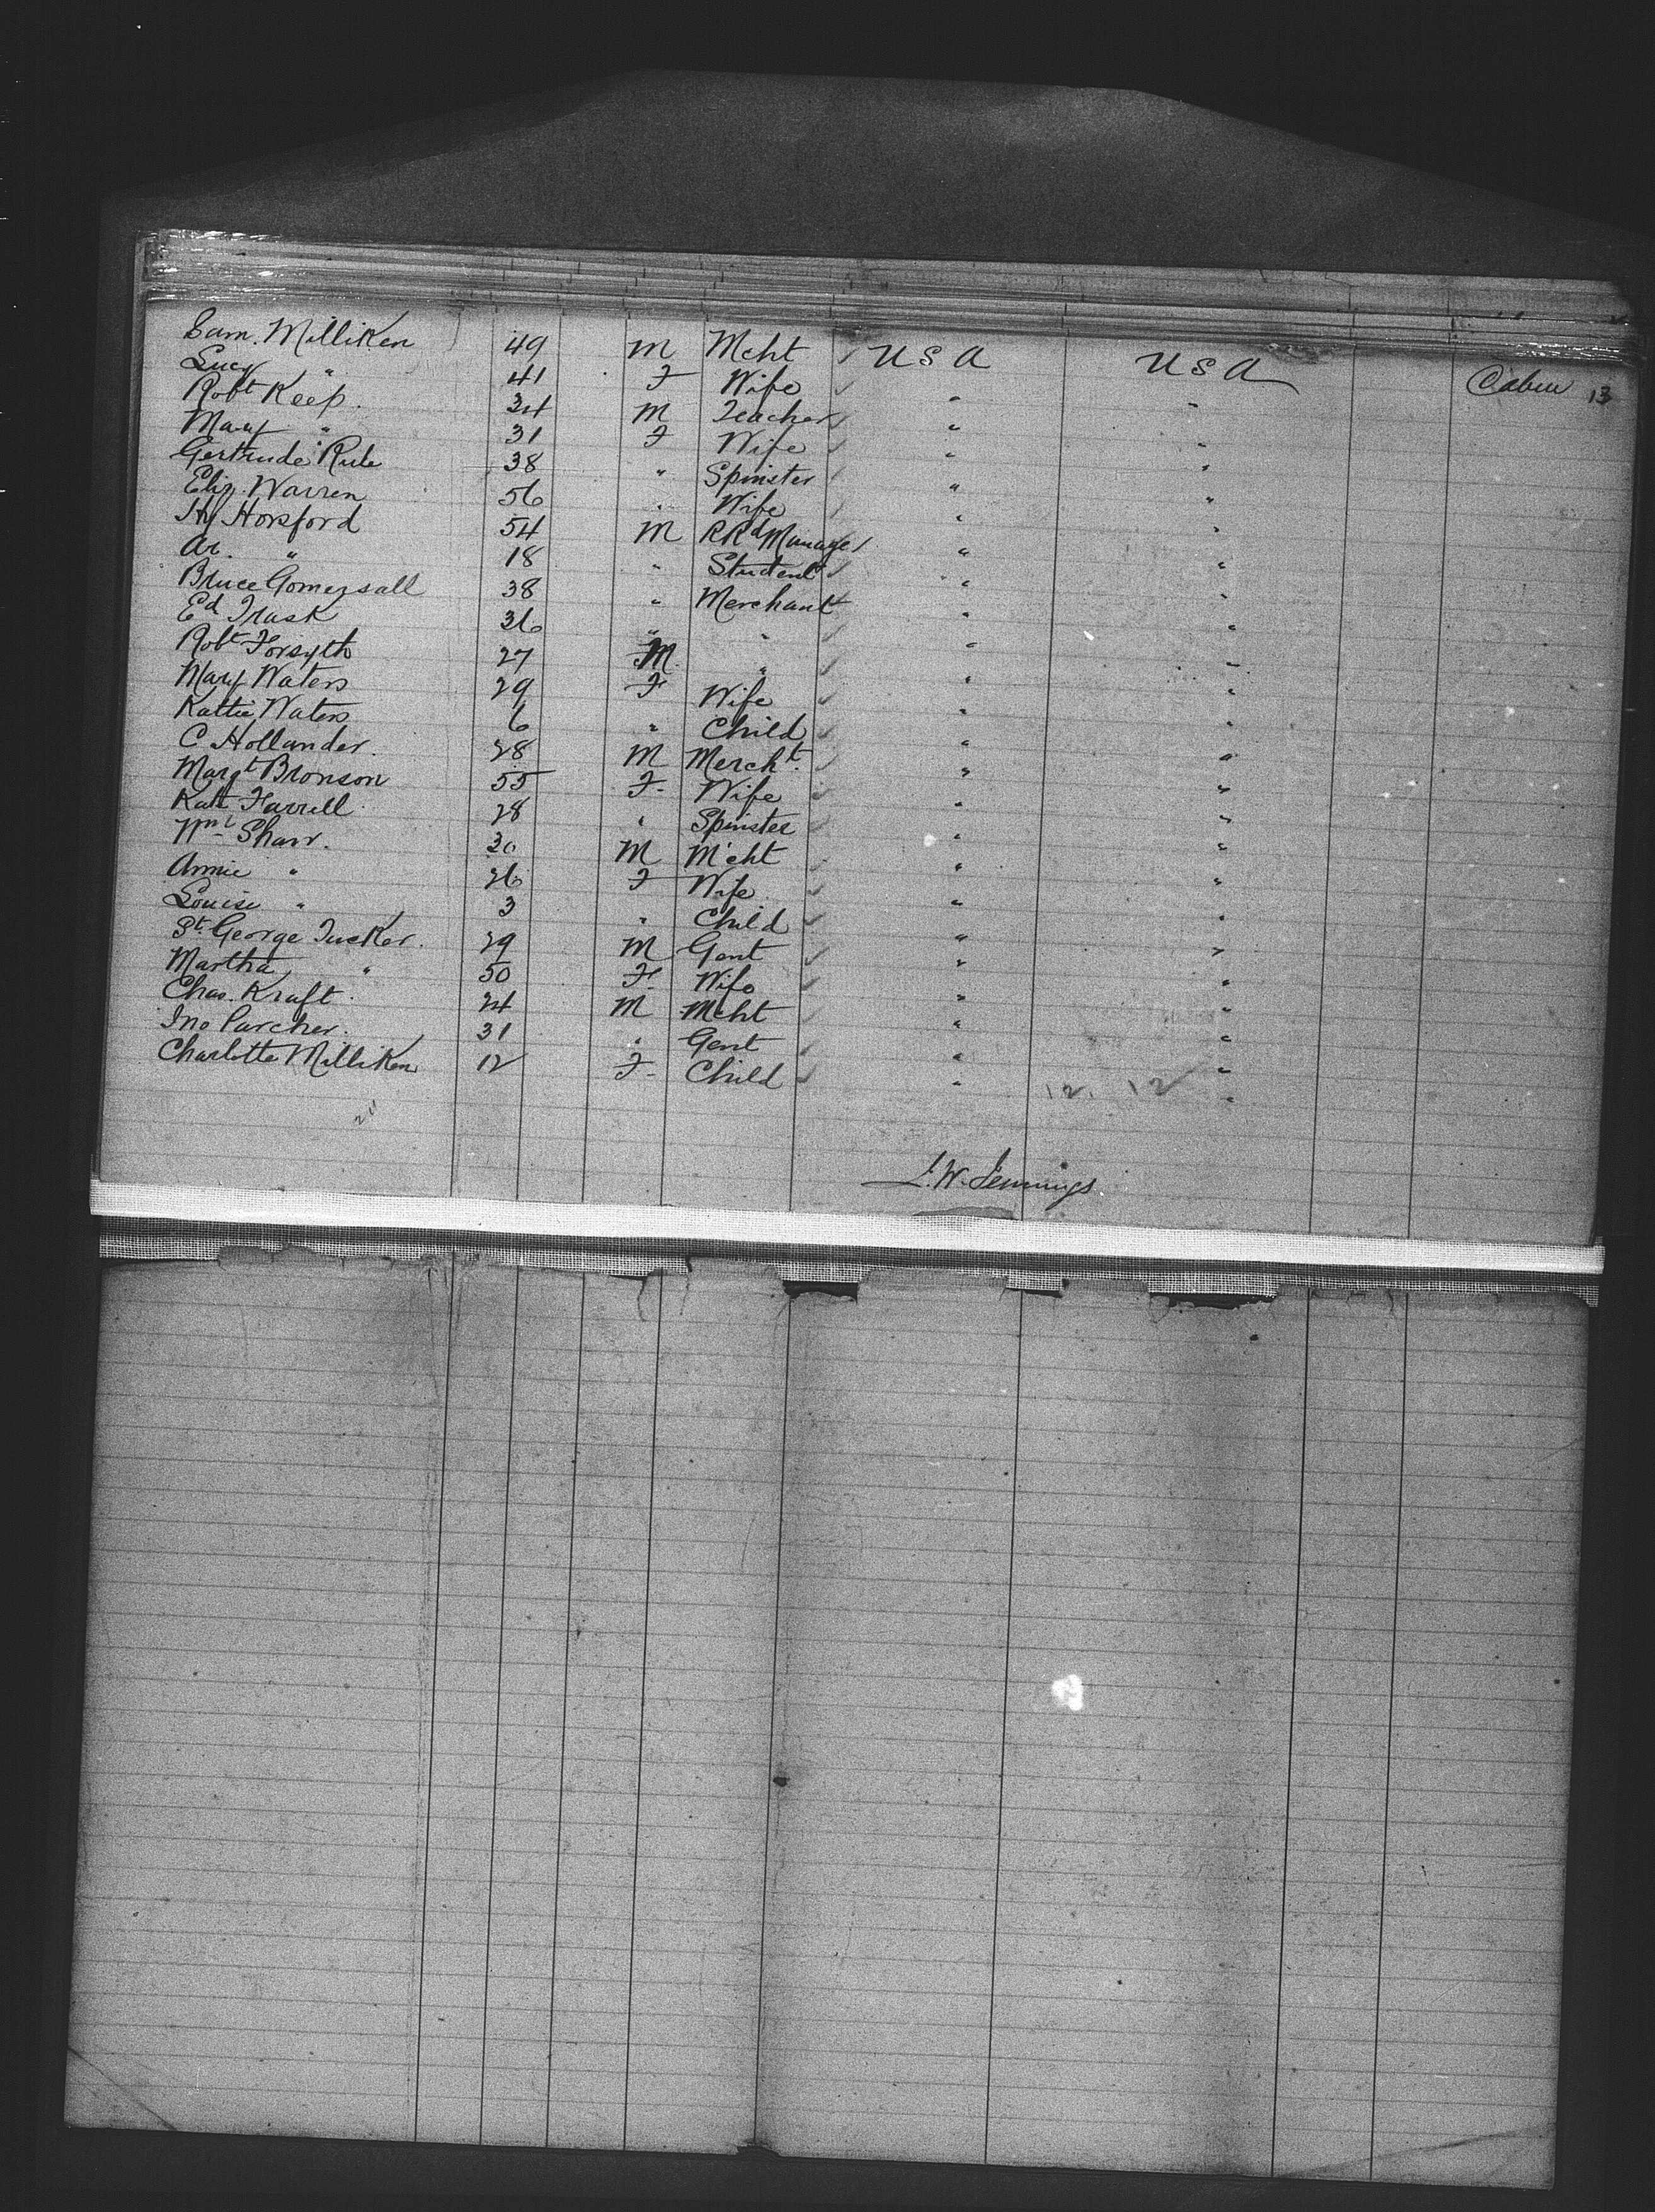 Sam. Milliken 49 M Mcht USA USA Cabin 13
Lucy " 41 F Wife " "
Robt Keep. 34 M Teacher " "
Mary " 31 F Wife " "
Gertrude Rule 38 " Spinster " "
Eliz. Warren 56 " Wife " "
Hy Horsford 54 M RRd Manager " "
Ar. " 18 " Student " "
Bruce Gomersall 38 " Merchant " "
Ed Trask 36 " " " "
Robt Forsyth 27 M. " " "
Mary Waters 29 F Wife " "
Kattie Waters 6 " Child " "
C Hollander. 28 M Mercht. " "
Margt Bronson 55 F. Wife " "
Kate Farrell 28 " Spinster " "
Wm Shaw. 30 M M'cht " "
Annie " 26 F Wife " "
Louise " 3 " Child " "
St. George Tucker. 29 M Gent " "
Martha " 50 F. Wife " "
Chas. Kraft. 24 M Mcht " "
Jno Parcher. 31 " Gent " "
Charlotte Milliken 12 F. Child " "
12. 12
L.W. Jennings.